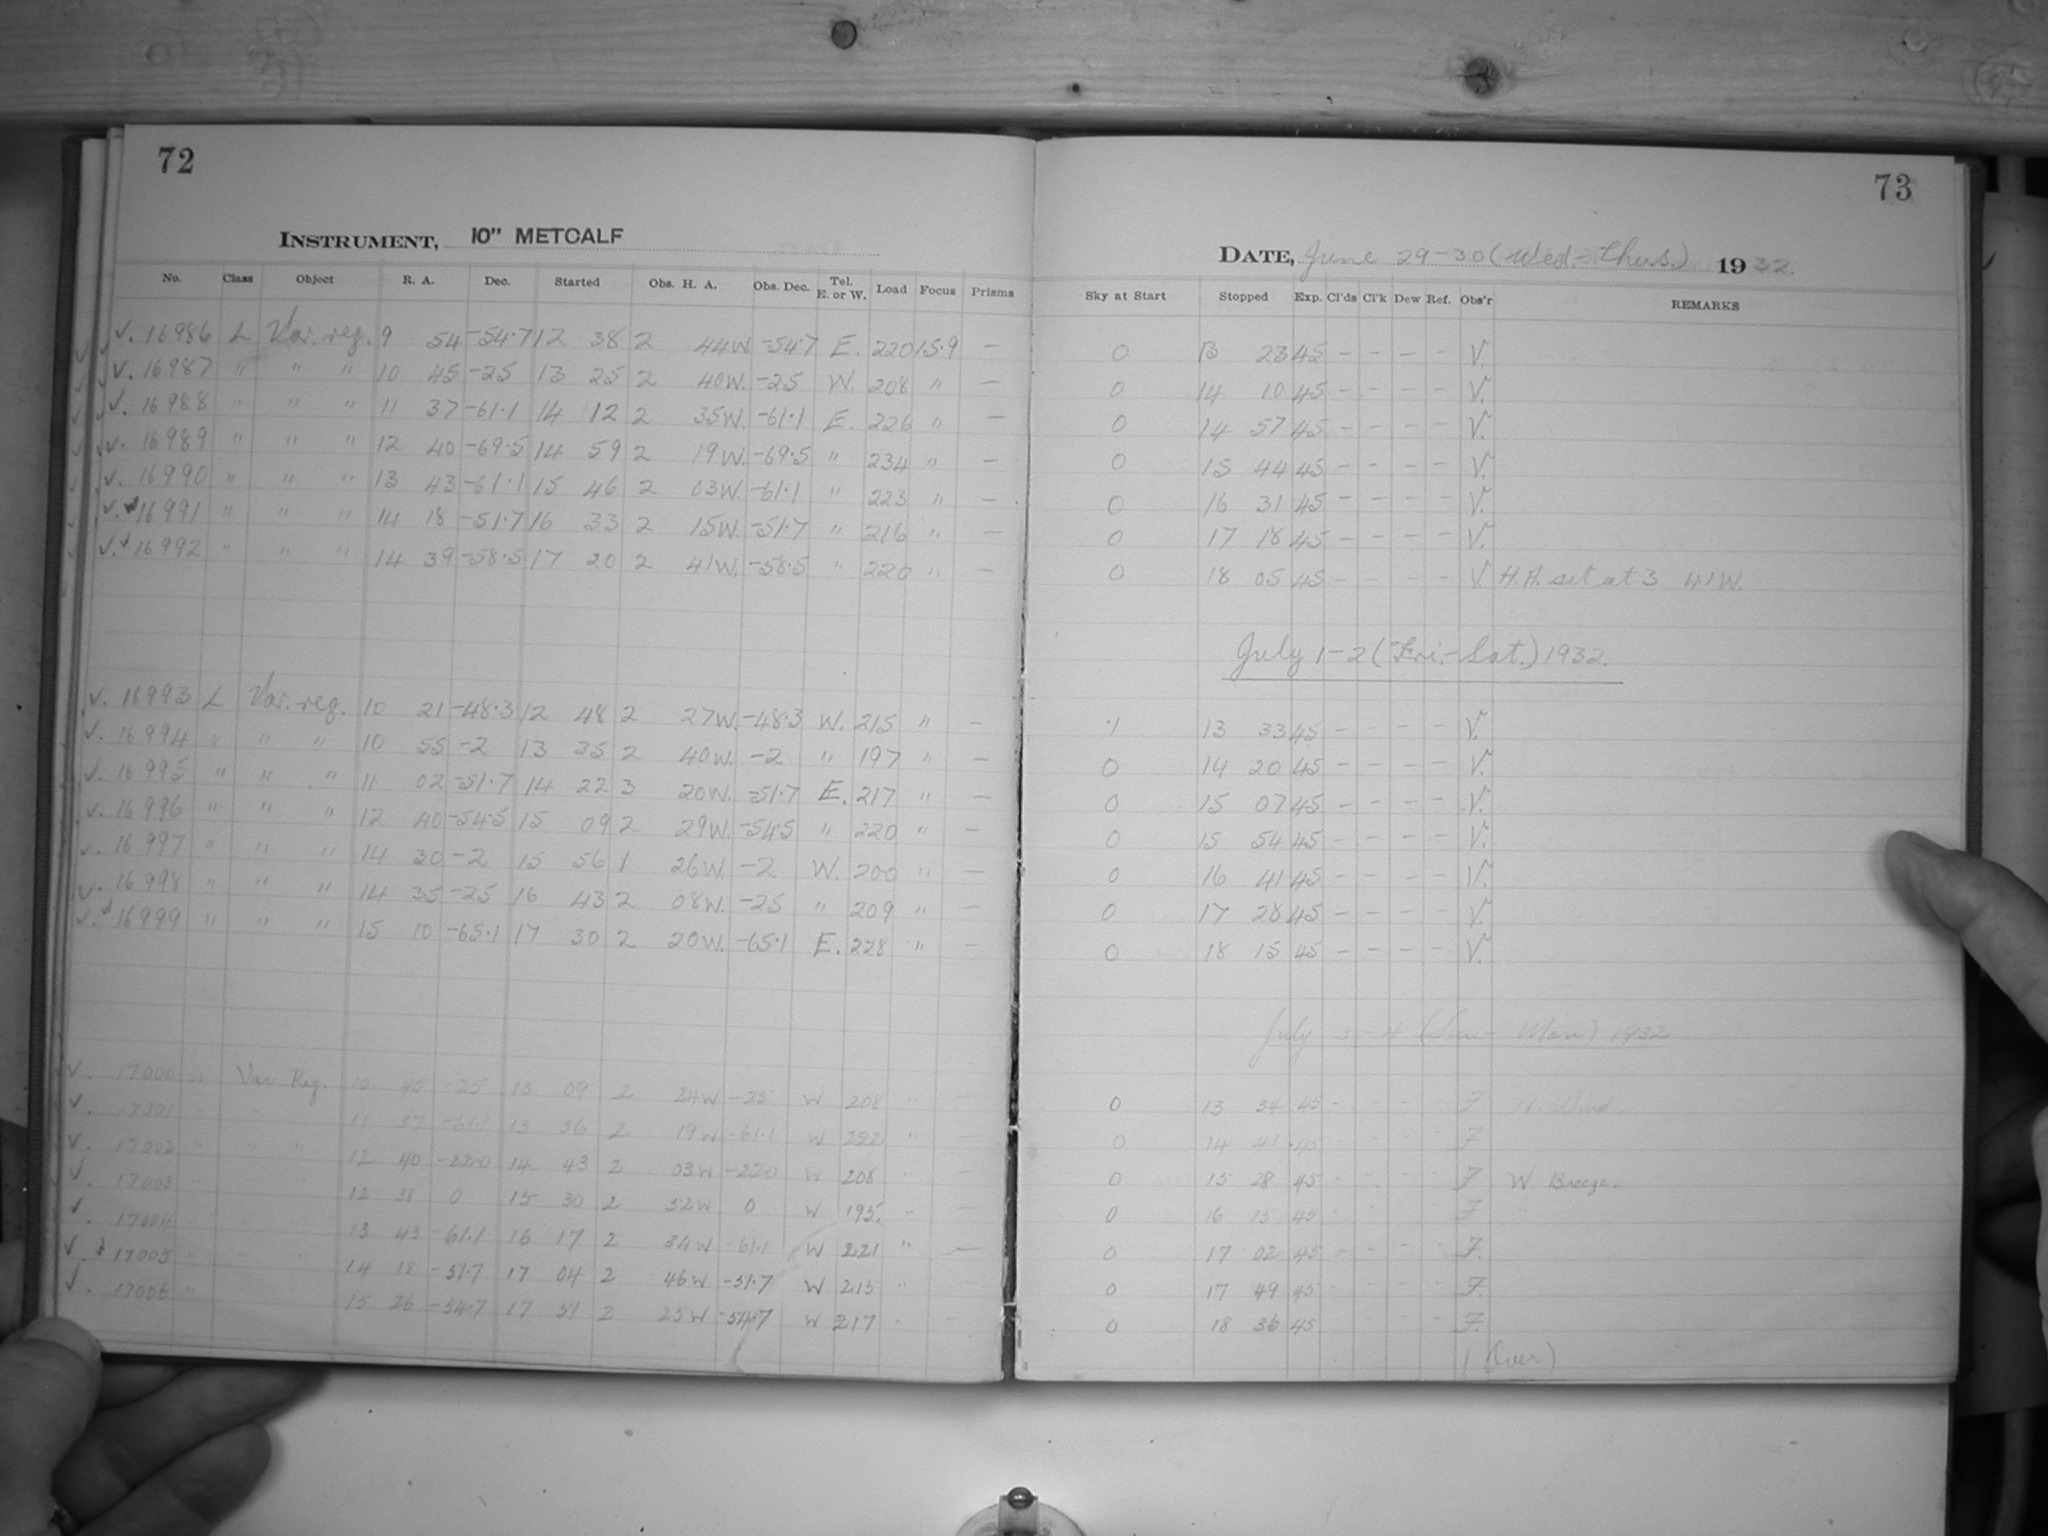 72
INSTRUMENT, 10" METCALF
No. Class Object R. A. Dec. Started Obs. H. A. Obs. Dec. Tel. E. or W. Load Focus Prisms
V. 16986 L Var. reg. 9 54 -54.7 12 38 2 44W. -54.7 E. 220 15.9 —
V. 16987 " " " 10 45 -25 13 25 2 40W. -25 W. 208 " —
V. 16988 " " " 11 37 -61.1 14 12 2 35W. -61.1 E. 226 " —
V. 16989 " " " 12 40 -69.5 14 59 2 19W. -69.5 " 234 " —
V. 16990 " " " 13 43 -61.1 15 46 2 03W. -61.1 " 223 " —
V. 16991 " " " 14 18 -51.7 16 33 2 15W. -51.7 " 216 " —
V. 16992 " " " 14 39 -58.5 17 20 2 41W. -58.5 " 220 " —
V. 16993 L Var. reg. 10 21 -48.3 12 48 2 27W. -48.3 W. 215 " —
V. 16994 " " " 10 55 -2 13 35 2 40W. -2 " 197 " —
V. 16995 " " " 11 02 -51.7 14 22 3 20W. -51.7 E. 217 " —
V. 16996 " " " 12 40 -54.5 15 09 2 29W. -54.5 " 220 " —
V. 16997 " " " 14 30 -2 15 56 1 26W. -2 W. 200 " —
V. 16998 " " " 14 35 -25 16 43 2 08W. -25 " 209 " —
V. 16999 " " " 15 10 -65.1 17 30 2 20W. -65.1 E. 228 " —
V. 17000 L Var Reg. 10 45 -25 13 09 2 24W -25 W 208 " —
V. 17001 " " " 11 37 -61.1 13 56 2 19W -61.1 W 222 " —
V. 17002 " " " 12 40 -22.0 14 43 2 03W -22.0 W 208 " —
V. 17003 " " " 12 38 0 15 30 2 52W 0 W 195 " —
V. 17004 " " " 13 43 -61.1 16 17 2 34W -61.1 W 221 " —
V. 17005 " " " 14 18 -51.7 17 04 2 46W -51.7 W 215 " —
V. 17006 " 15 26 -54.7 17 51 2 25W -54.7 W 217 " —
73
DATE, June 29-30 (Wed.-Thus.) 1932.
Sky at Start Stopped Exp. Cl'ds Cl'k Dew Ref. Obs'r REMARKS
0 13 23 45 - - - - V.
0 14 10 45 - - - - V.
0 14 57 45 - - - - V.
0 15 44 45 - - - - V.
0 16 31 45 - - - - V.
0 17 18 45 - - - - V.
0 18 05 45 - - - - V. H.A. set at 3 41W.
July 1-2 (Fri.-Sat.) 1932.
.1 13 33 45 - - - - V.
0 14 20 45 - - - - V.
0 15 07 45 - - - - V.
0 15 54 45 - - - - V.
0 16 41 45 - - - - V.
0 17 28 45 - - - - V.
0 18 15 45 - - - - V.
July 3-4 (Sun-Mon) 1932
0 13 54 45 - - - - F N Wind.
0 14 41 45 - - - - F
0 15 28 45 - - - - F W Breeze.
0 16 15 45 - - - - F "
0 17 02 45 - - - - F.
0 17 49 45 - - - - F.
0 18 36 45 - - - - F.
(Over)